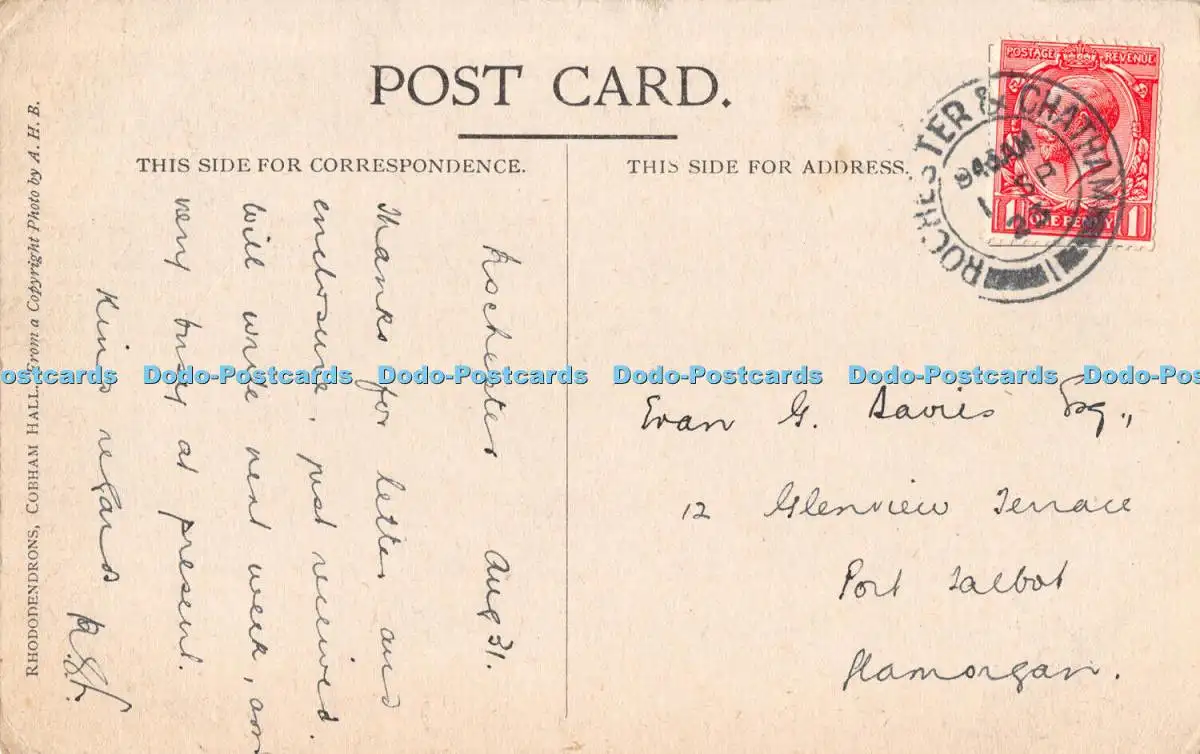 POST CARD.
THIS SIDE FOR CORRESPONDENCE.
THIS SIDE FOR ADDRESS.
RHODODENDRONS, COBHAM HALL. From a Copyright Photo by A. H. B.
Rochester Aug 31.
Thanks for letter and
enclosure, just received.
Will write next week, am
very busy at present.
Kind regards
POSTAGE REVENUE
ONE PENNY
1 1
ROCHESTER & CHATHAM
945AM
1 SP
23
1
Evan G. Davies Esq.,
12 Glenview Terrace
Port Talbot
Glamorgan.
Dodo-Postcards Dodo-Postcards Dodo-Postcards Dodo-Postcards Dodo-Postcards Dodo-Postcards